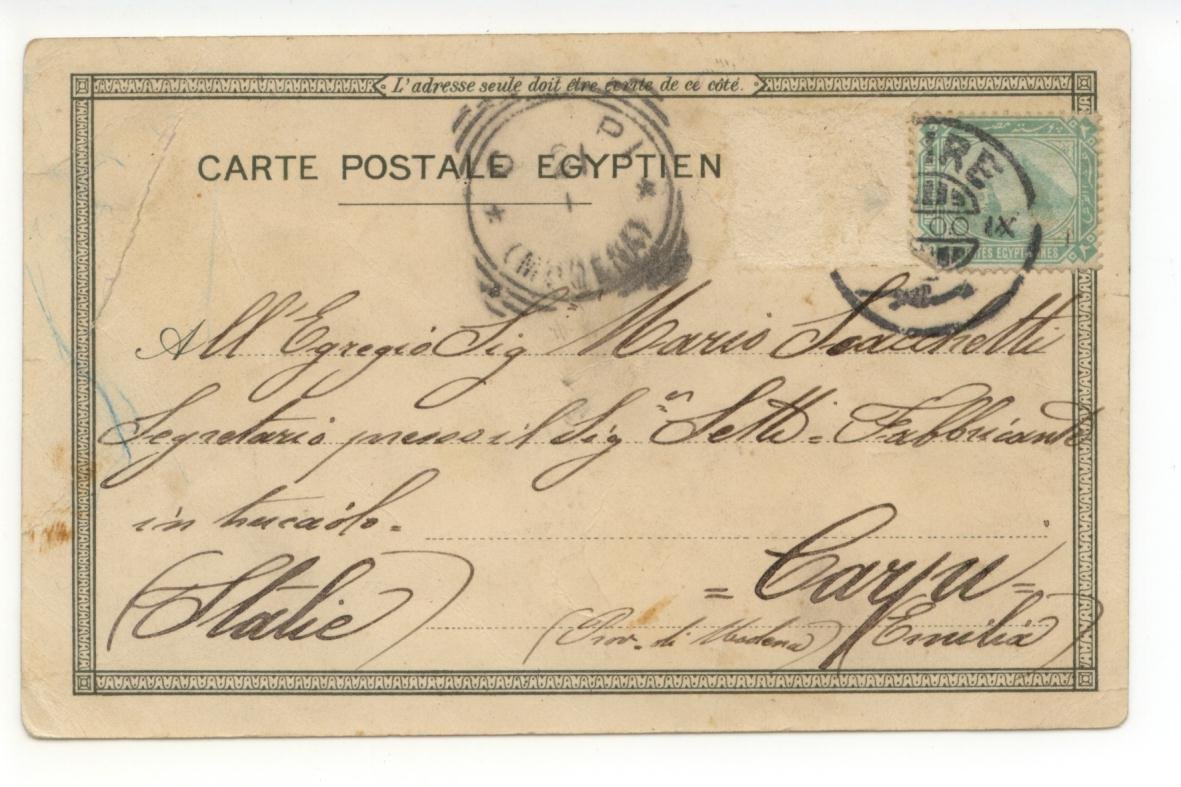 L'adresse seule doit être écrite de ce côté.
CARTE POSTALE EGYPTIEN
C PI
(MODENA)
IRE
00 IX
TES EGYPTIENNES
All'Egregio Sig Mario Sacchetti
Segretario presso il Sigʳ Setti = Fabbricante
in truciolo =
= Carpi =
(Italie)
(Prov. di Modena) (Emilia)